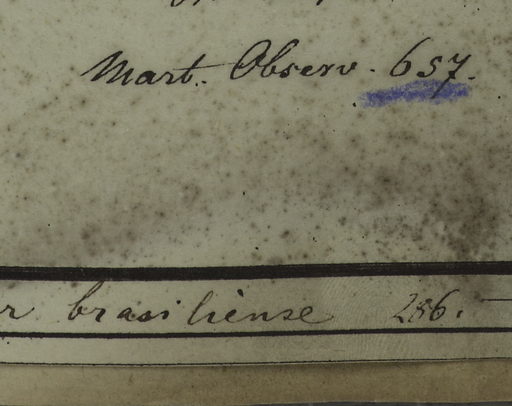 Mart. Observ. 657.
r brasiliense 286.